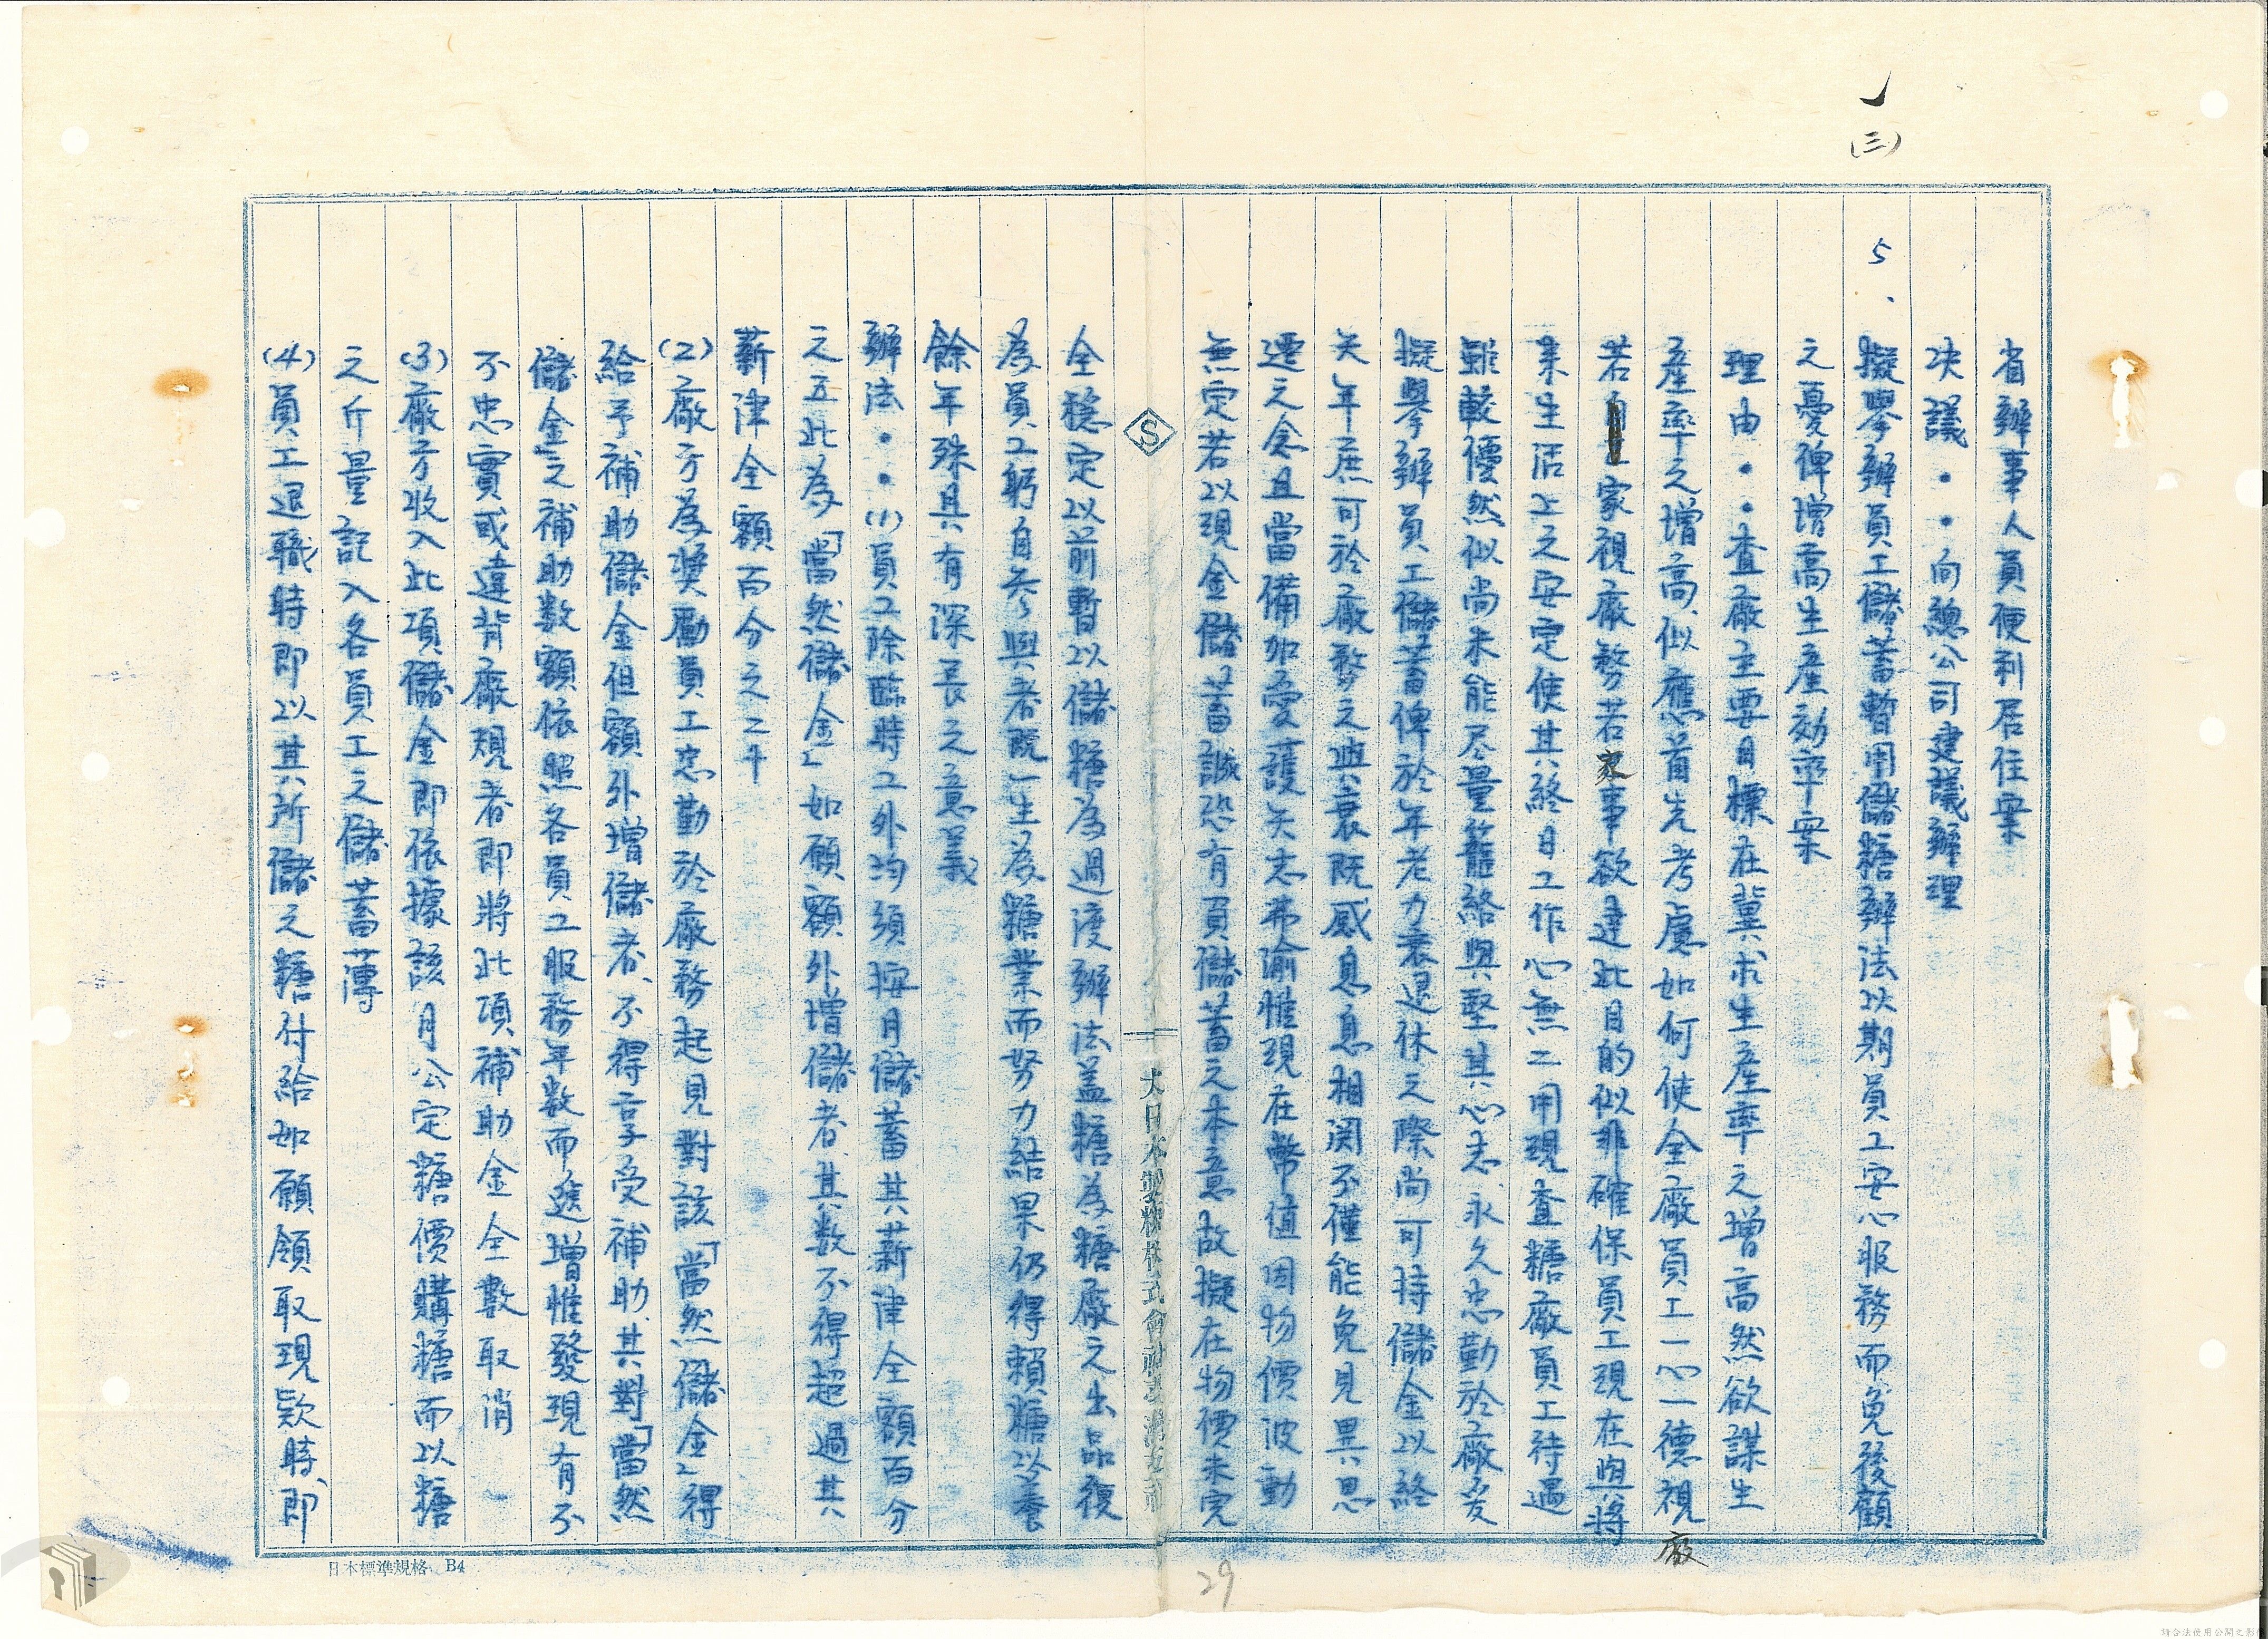 (三)
省辦事人員便利居住案
決議··向總公司建議辦理
5、擬舉辦員工儲蓄暫用儲糖辦法以期員工安心服務而免後顧
之憂俾增高生產効率案
理由··查廠主要目標在冀求生產率之增高然欲謀生
產率之增高、似應首先考慮如何使全廠員工一心一德視廠
若家視廠務若家事欲達此目的似非確保員工現在與將
來生活上之安定使其終日工作心無二用現查糖廠員工待遇
雖較優然似尚未能尽量籠絡與堅其心志、永久忠勤於廠爰
擬舉辦員工儲蓄俾於年老力衰退休之際尚可持儲金以終
天年庶可於廠務之興衰既感息息相関不僅能免見異思
遷之念且當備加愛護矢志弗渝惟現在幣值因物價波動
無定若以現金儲蓄誠恐有負儲蓄之本意故擬在物價未完
全穩定以前暫以儲糖為過渡辦法蓋糖為糖廠之出品復
為員工躬自參與者既一生為糖業而努力結果仍得賴糖以養
餘年殊具有深長之意義
辦法··(1)員工除臨時工外均須按月儲蓄其薪津全額百分
之五此為「當然儲金」如願額外增儲者、其数不得超過其
薪津全額百分之二十
(2)廠方為獎勵員工忠勤於廠務起見對該「當然儲金」得
給予補助儲金但額外增儲者、不得享受補助、其對「當然
儲金」之補助数額依照各員工服務年数而遞增惟發現有不
不忠實或違背廠規者即將此項補助金全數取消
(3)廠方收入此項儲金即依據該月公定糖價購糖而以糖
之斤量記入各員工之儲蓄薄
(4)員工退職時即以其所儲之糖付給如願領取現欵時、即
大日本製糖株式會社
日本標準規格 B4
29
請合法使用公開之影